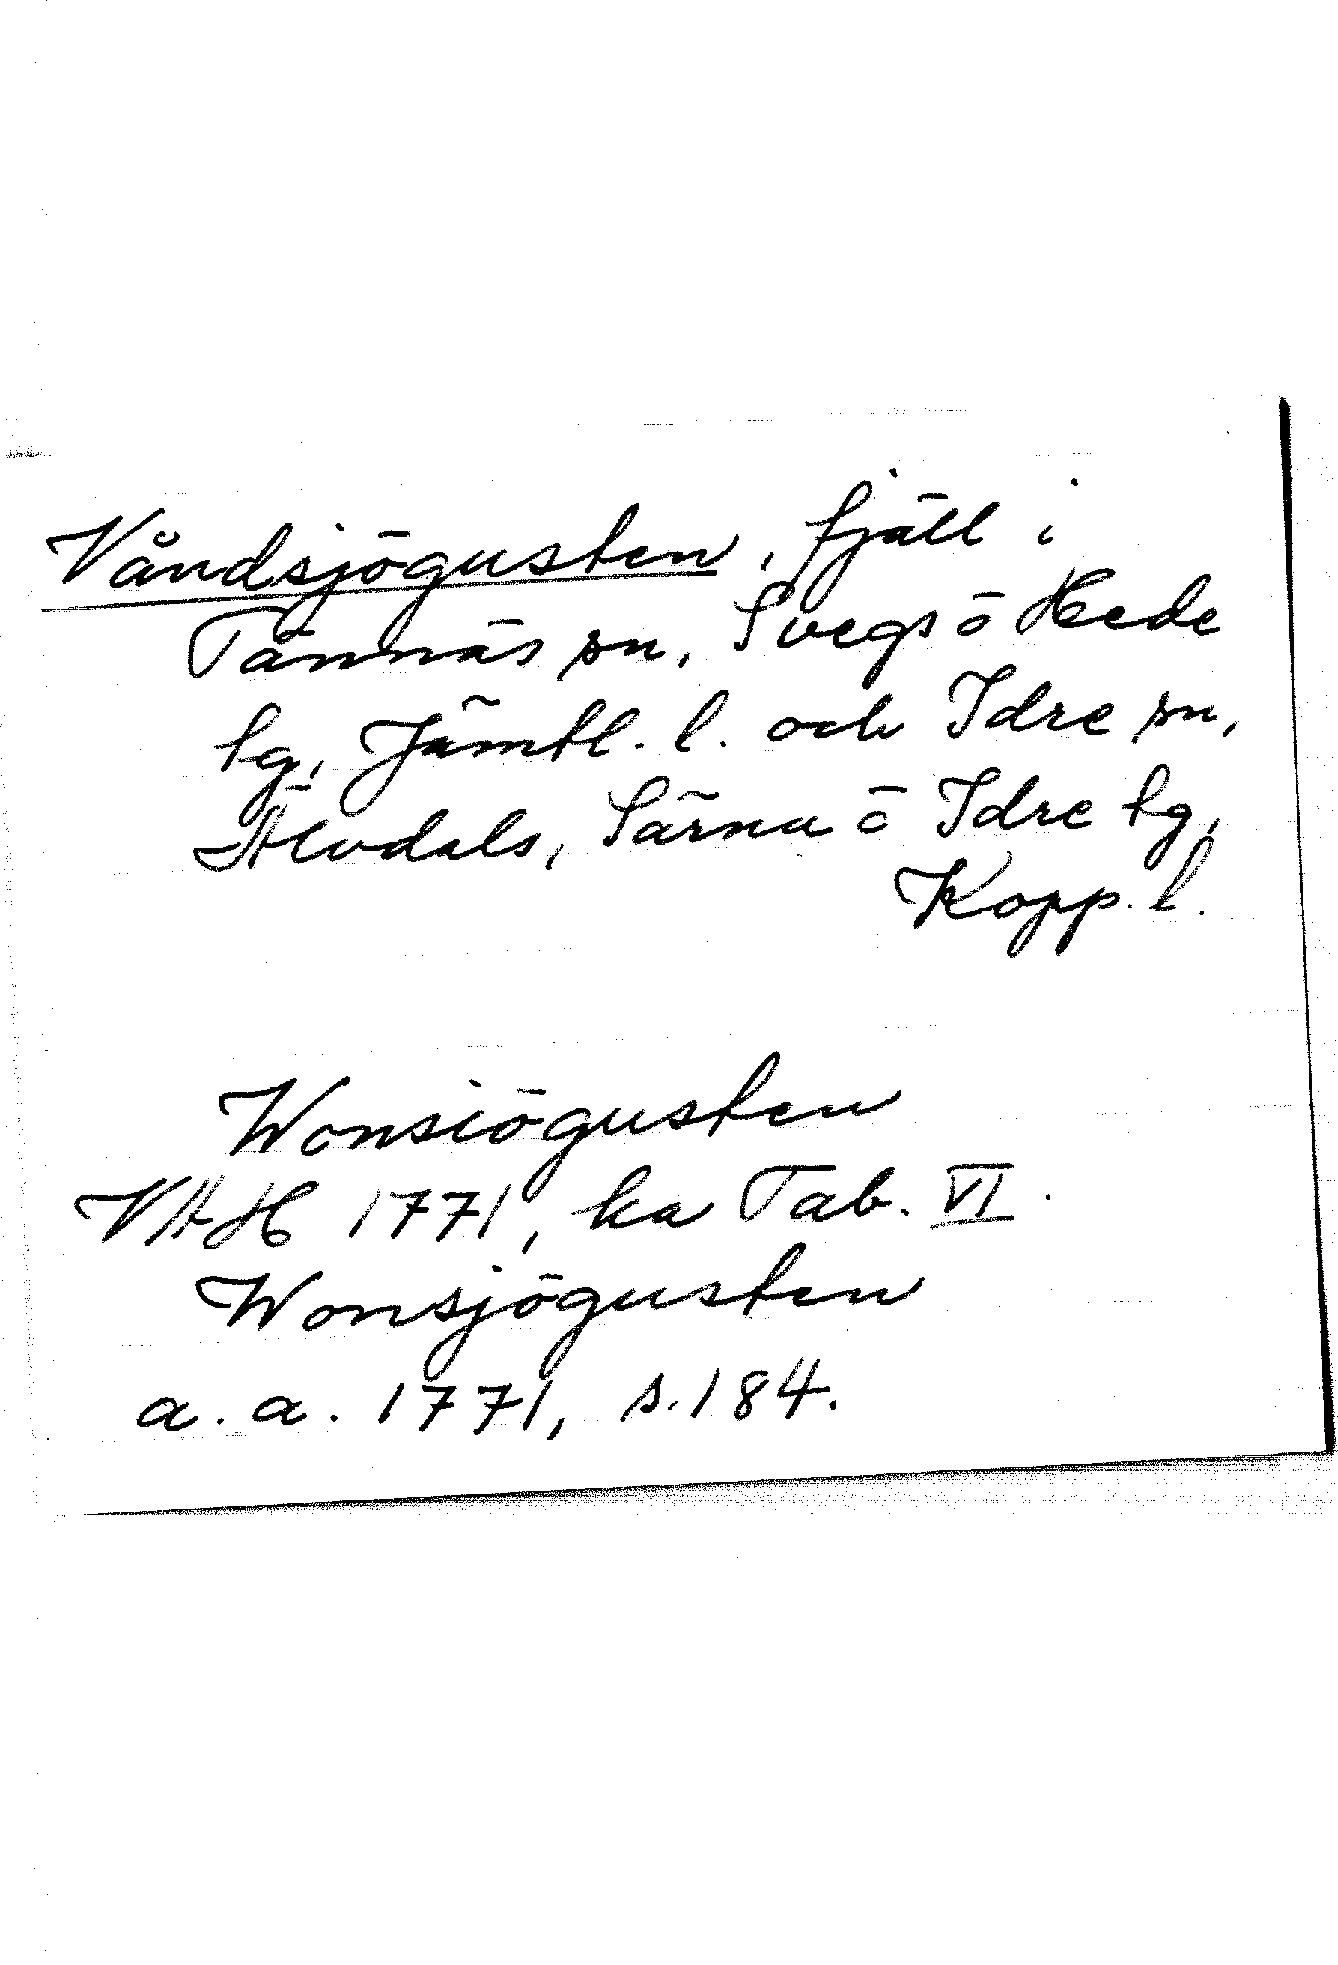 Våndsjögusten, fjäll i
Tännäs sn, Svegs ö Hede
tg, Jämtl. l. och Idre sn,
Älvdals, Särna ö Idre tg,
Kopp. l.
Wonsiögusten
VAH 1771, ka Tab. VI.
Wonsjögusten
a. a. 1771, s. 184.